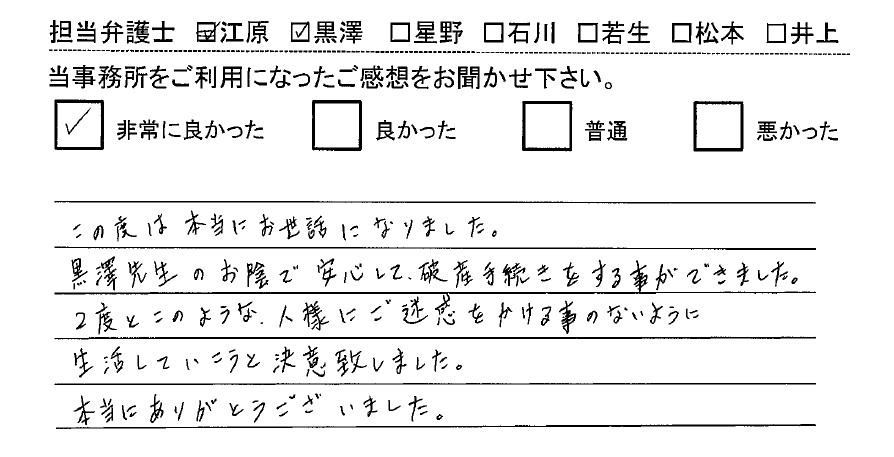 担当弁護士 ☑江原 ☑黒澤 □星野 □石川 □若生 □松本 □井上
当事務所をご利用になったご感想をお聞かせ下さい。
☑ 非常に良かった □ 良かった □ 普通 □ 悪かった
この度は本当にお世話になりました。
黒澤先生のお陰で安心して、破産手続きをする事ができました。
2度とこのような、人様にご迷惑をかける事のないように
生活していこうと決意致しました。
本当にありがとうございました。